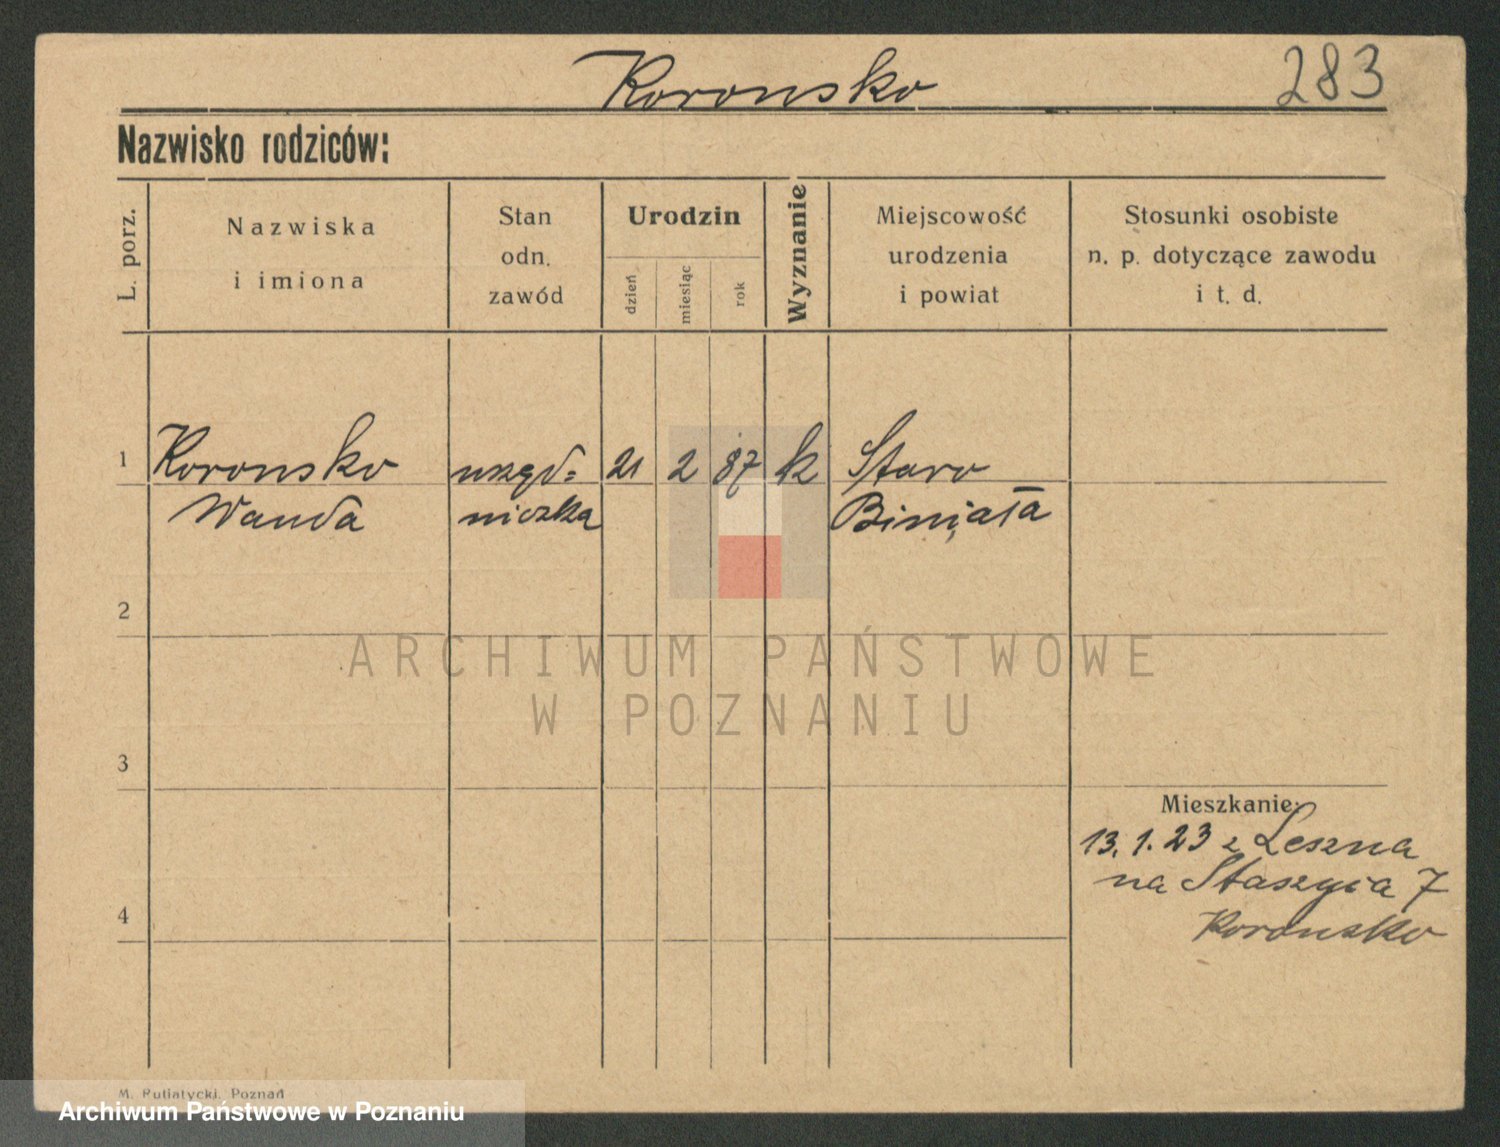 Koronsko 283
Nazwisko rodziców:
L. porz.
Nazwiska
i imiona
Stan
odn.
zawód
Urodzin
dzień
miesiąc
rok
Wyznanie
Miejscowość
urodzenia
i powiat
Stosunki osobiste
n. p. dotyczące zawodu
i t. d.
1 Koronsko urzęd= 21 2 87 k Staro
Wanda niczka
2
ARCHIWUM PAŃSTWOWE
W POZNANIU
3
Mieszkanie:
13. 1. 23 z Leszna
na Staszyca 7
4
Koronsko
M. Putiatycki, Poznań
Archiwum Państwowe w Poznaniu